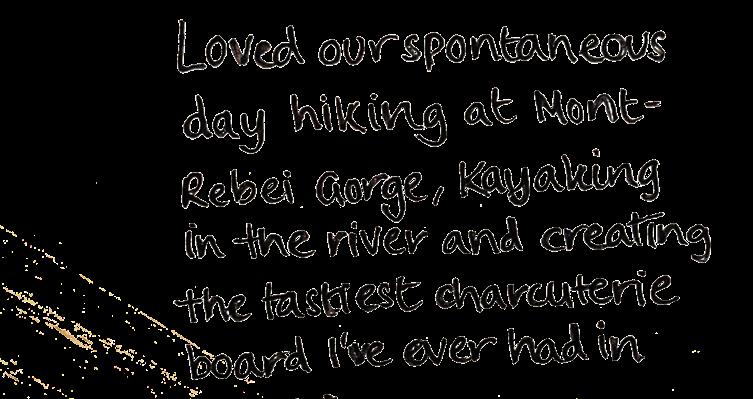 Loved our spontaneous
day hiking at Mont-
Rebei Gorge, Kayaking
in the river and creating
the tastiest charcuterie
board I've ever had in